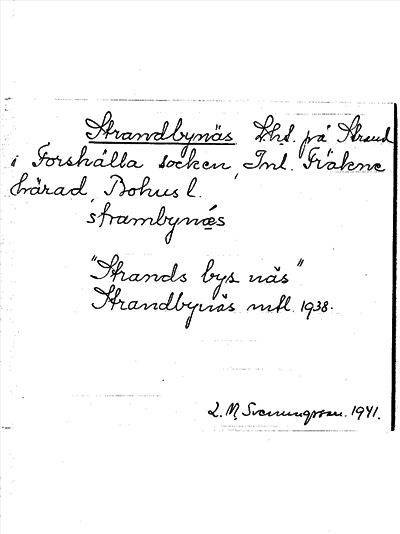 Strandbynäs Lht. på Strand
i Forshälla socken, Inl. Fräkne
härad, Bohusl.
strambynæs
"Strands bys näs"
Strandbynäs mtl. 1938.
L. M. Svenungsson. 1941.